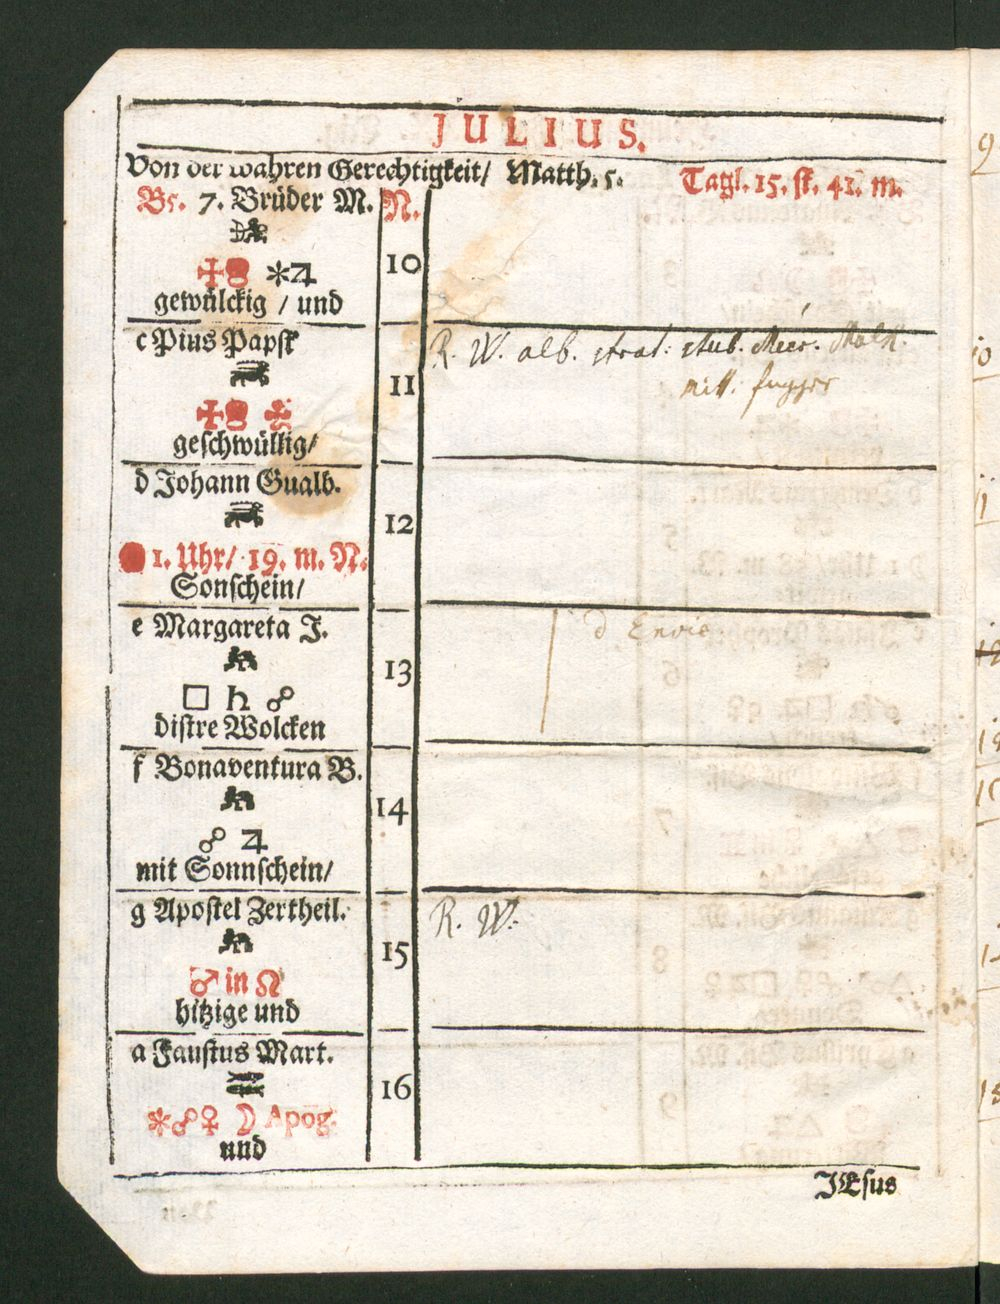 JULIUS.
Von der wahren Gerechtigkeit/ Matth. 5. Tagl. 15. st. 41. m.
B5. 7. Brüder M. N.
10
✶♃
gewülckig / und
c Pius Papst
R. W. alb. strat: stub.
11
geschwüllig/
d Johann Gualb.
12
1. Uhr/ 19. m. N.
Sonschein/
e Margareta J.
d
13
□ ♄ ☍
distre Wolcken
f Bonaventura B.
14
☍ ♃
mit Sonnschein/
g Apostel Zertheil.
R. W.
15
♂ in ♌
hitzige und
a Faustus Mart.
16
✶☍♀ ☽ Apog.
und
JEsus